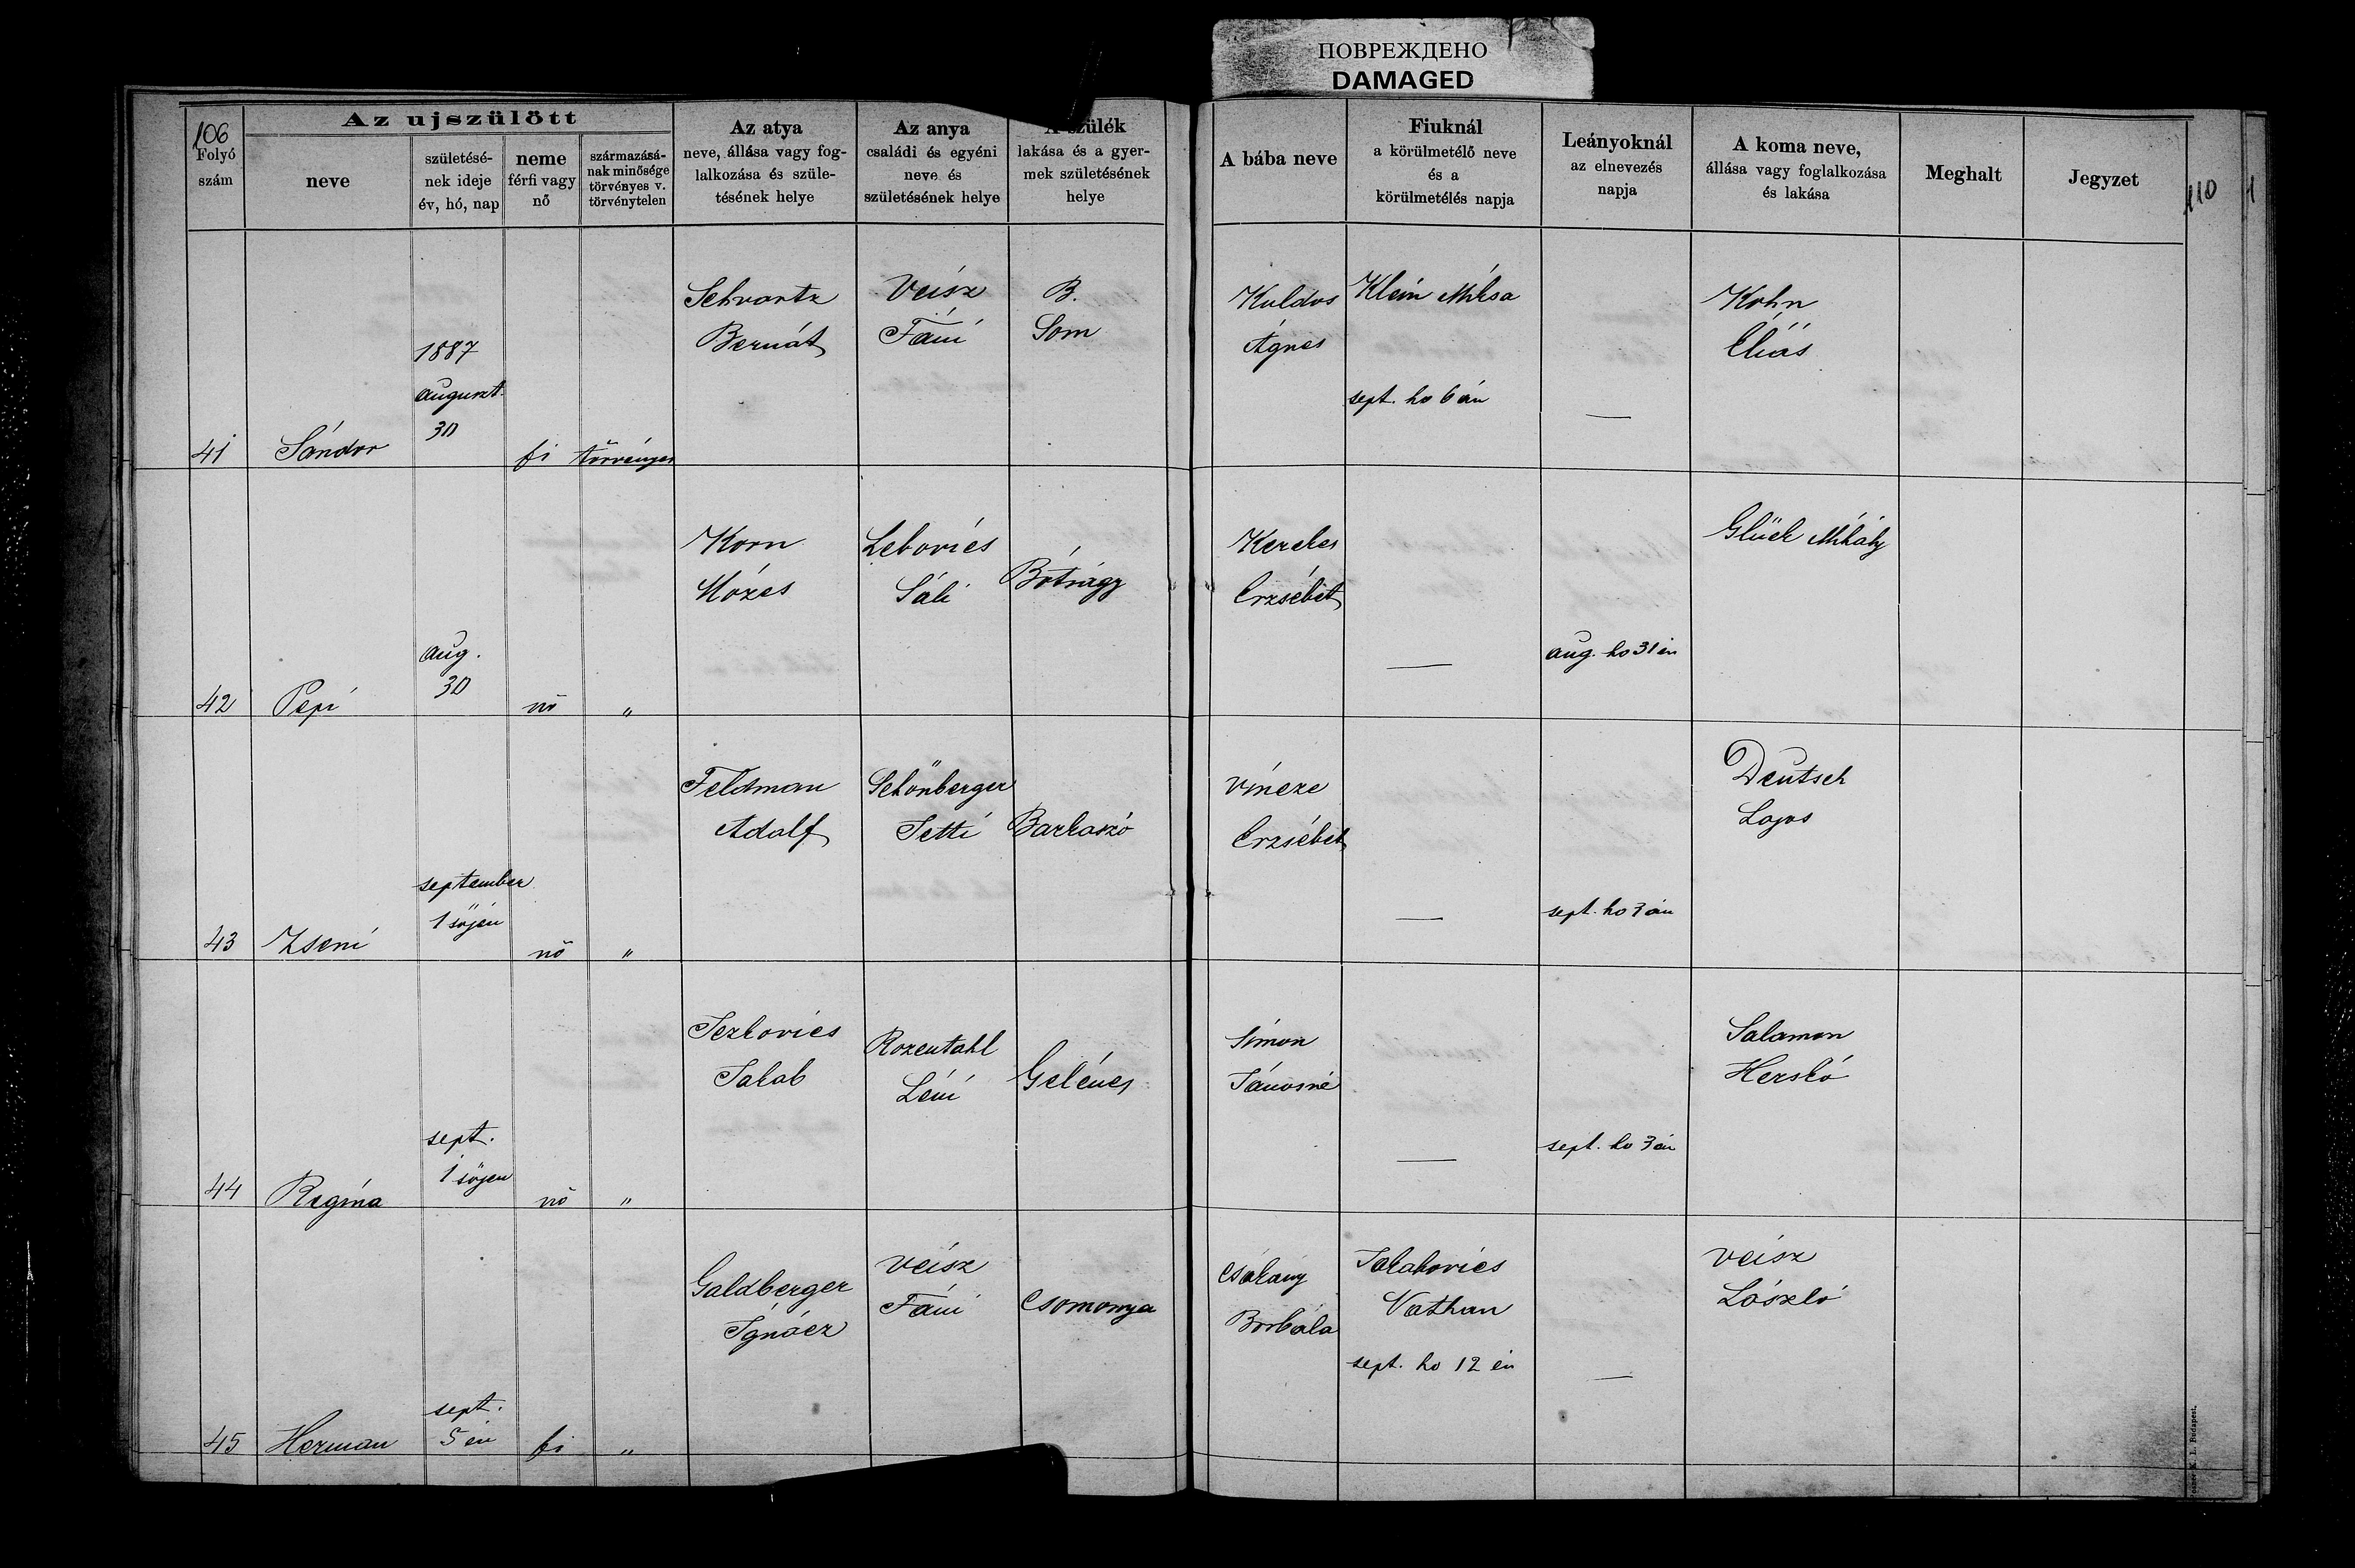 ПОВРЕЖДЕНО
DAMAGED
106
Az ujszülött
Folyó
szám
neve
születésé-
nek ideje
év, hó, nap
neme
férfi vagy
nő
származásá-
nak minősége
törvényes v.
törvénytelen
Az atya
neve, állása vagy fog-
lalkozása és szüle-
tésének helye
Az anya
családi és egyéni
neve és
születésének helye
A szülék
lakása és a gyer-
mek születésének
helye
A bába neve
Fiuknál
a körülmetélő neve
és a
körülmetélés napja
Leányoknál
az elnevezés
napja
A koma neve,
állása vagy foglalkozása
és lakása
Meghalt
Jegyzet
110
1
41
Sándor
1887
auguszt.
30
fi
törvényes
Schvartz
Bernát
Veisz
Fáni
B.
Som
Kuldus
Ágnes
Klein Miksa
sept. ho 6 án
—
Kohn
Éliás
42
Pepi
aug.
30
nő
"
Korn
Mózes
Lebovics
Sáli
Bótrágy
Kerekes
Erzsébet
—
aug. ho 31 én
Glück Mihály
43
Zseni
september
1 sőjén
nő
"
Feldman
Adolf
Schönberger
Jetti
Barkaszó
Vincze
Erzsébet
—
sept. ho 3 án
Deutsch
Lajos
44
Regina
sept.
1 sőjen
nő
"
Iczkovics
Jakab
Rozentahl
Léni
Gelénes
Simon
Jánosné
—
sept. ho 3 án
Salamon
Herskó
45
Herman
sept.
5 én
fi
"
Goldberger
Ignácz
Veisz
Fáni
Csomonya
Csákány
Borbála
Jakabovics
Nathan
sept. ho 12 én
—
Veisz
László
K. L. Budapest.